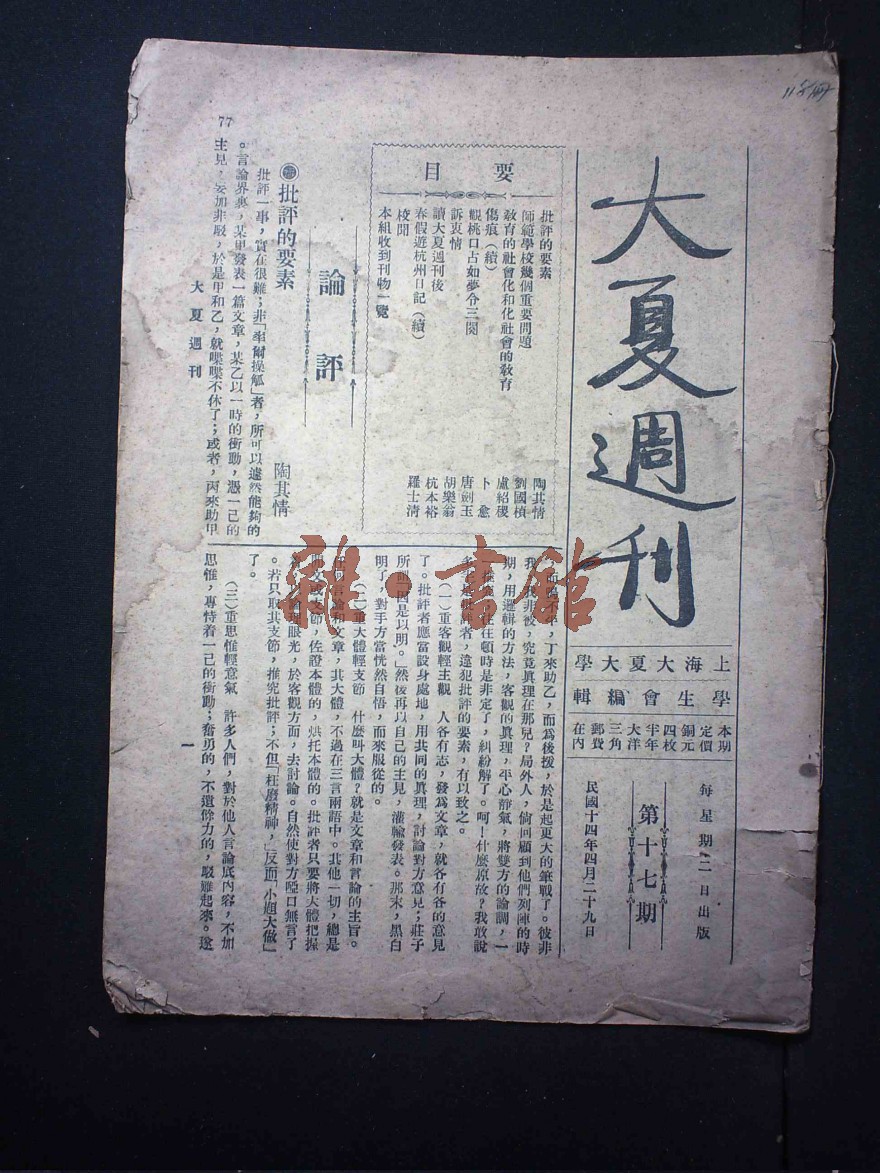 大夏週刊
上海大夏大學
學生會編輯
本期
定價
銅元
四枚
半年
大洋
三角
郵費
在內
每星期二日出版
第十七期
民國十四年四月二十九日
要目
批評的要素 陶其情
師範學校幾個重要問題 劉國楨
教育的社會化和化社會的教育 盧紹稷
傷痕(續) 卜愈
觀桃口占如夢令三闋 唐劍玉
訴衷情
讀大夏週刊後 胡樂翁
春假遊杭州日記(續) 杭本裕
校聞 羅士清
本組收到刊物一覽
論評
批評的要素 陶其情
批評一事,實在很難;非「率爾操觚」者,所可以遽然能夠的
。言論界裏,某甲發表一篇文章,某乙以一時的衝動,憑一己的
主見,妄加非駁,於是甲和乙,就喋喋不休了;或者,丙來助甲
大夏週刊
77
,而鳴不平,丁來助乙,而為後援,於是起更大的筆戰了。彼非
我,我非彼,究竟真理在那兒?局外人,倘回顧到他們列陣的時
期,用邏輯的方法,客觀的真理,平心靜氣,將雙方的論調,一
往往頓時是非定了,糾紛解了。呵!什麼原故?我敢說
批評者,違犯批評的要素,有以致之。
(一)重客觀輕主觀 人各有志,發為文章,就各有各的意見
了。批評者應當設身處地,用共同的真理,討論對方意見;莊子
所謂「因是以明。」然後再以自己的主見,灌輸發表。那末,黑白
明了,對手方當恍然自悟,而來服從的。
(二)重大體輕支節 什麼叫大體?就是文章和言論的主旨。
言論和文章,其大體,不過在三言兩語中。其他一切,總是
文或支節,佐證本體的,烘托本體的。批評者只要將大體把握
眼光,於客觀方面,去討論。自然使對方啞口無言了
。若只取其支節,推究批評;不但「枉廢精神,」反而「小題大做」
了。
(三)重思惟輕意氣 許多人們,對於他人言論底內容,不加
思惟,專恃着一己的衝動;奮勇的,不遺餘力的,駁難起來。遂
一
雜·書館